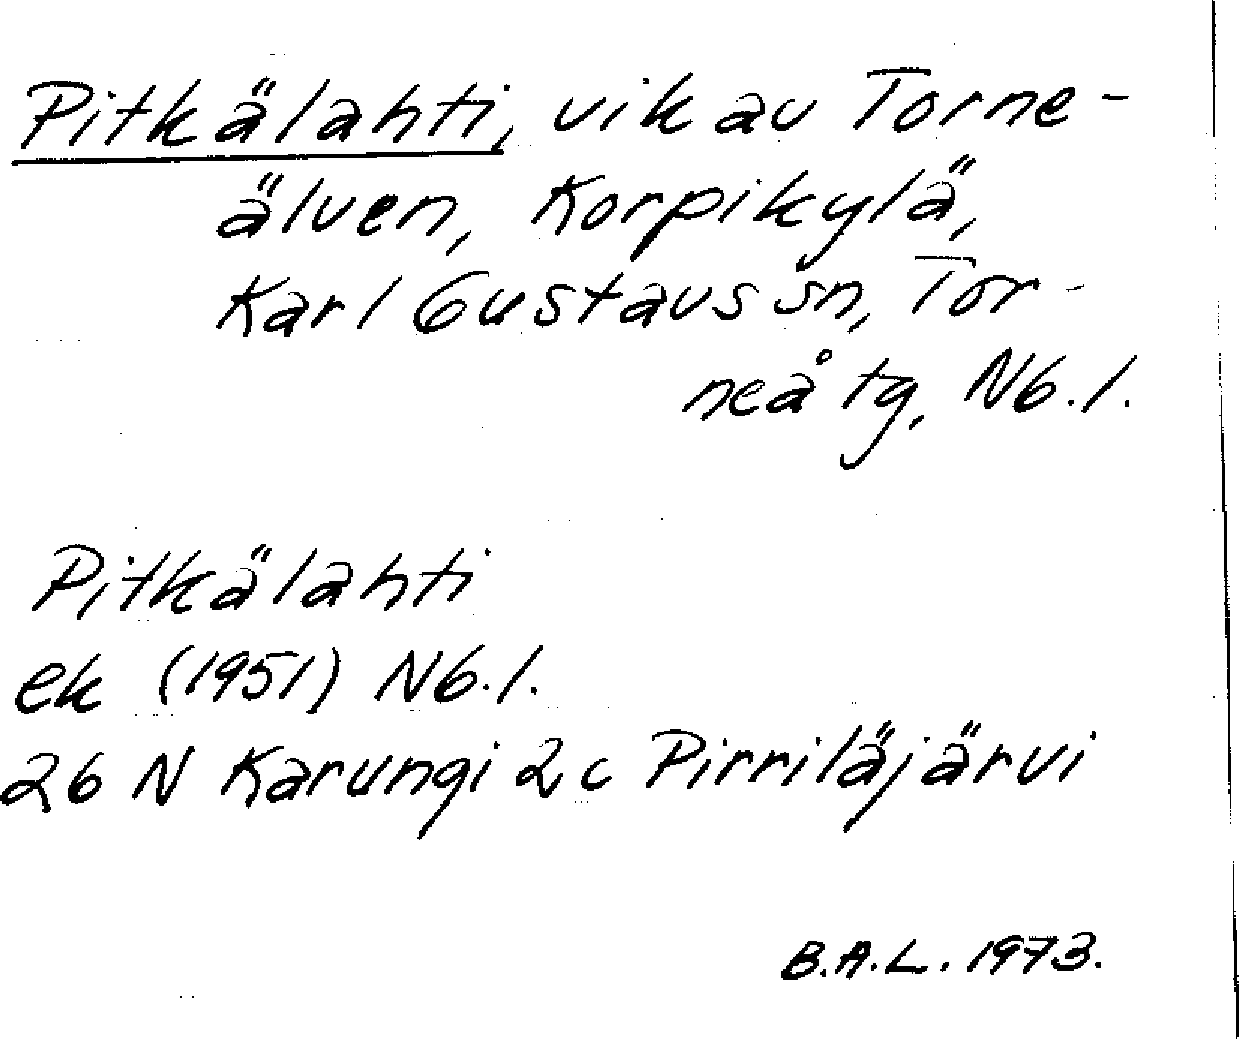 Pitkälahti, vik av Torne-
älven, Korpikylä,
Karl Gustavs sn, Tor-
neå tg, Nb.l.
Pitkälahti
ek (1951) Nb.l.
26 N Karungi 2c Pirriläjärvi
B.A.L. 1973.